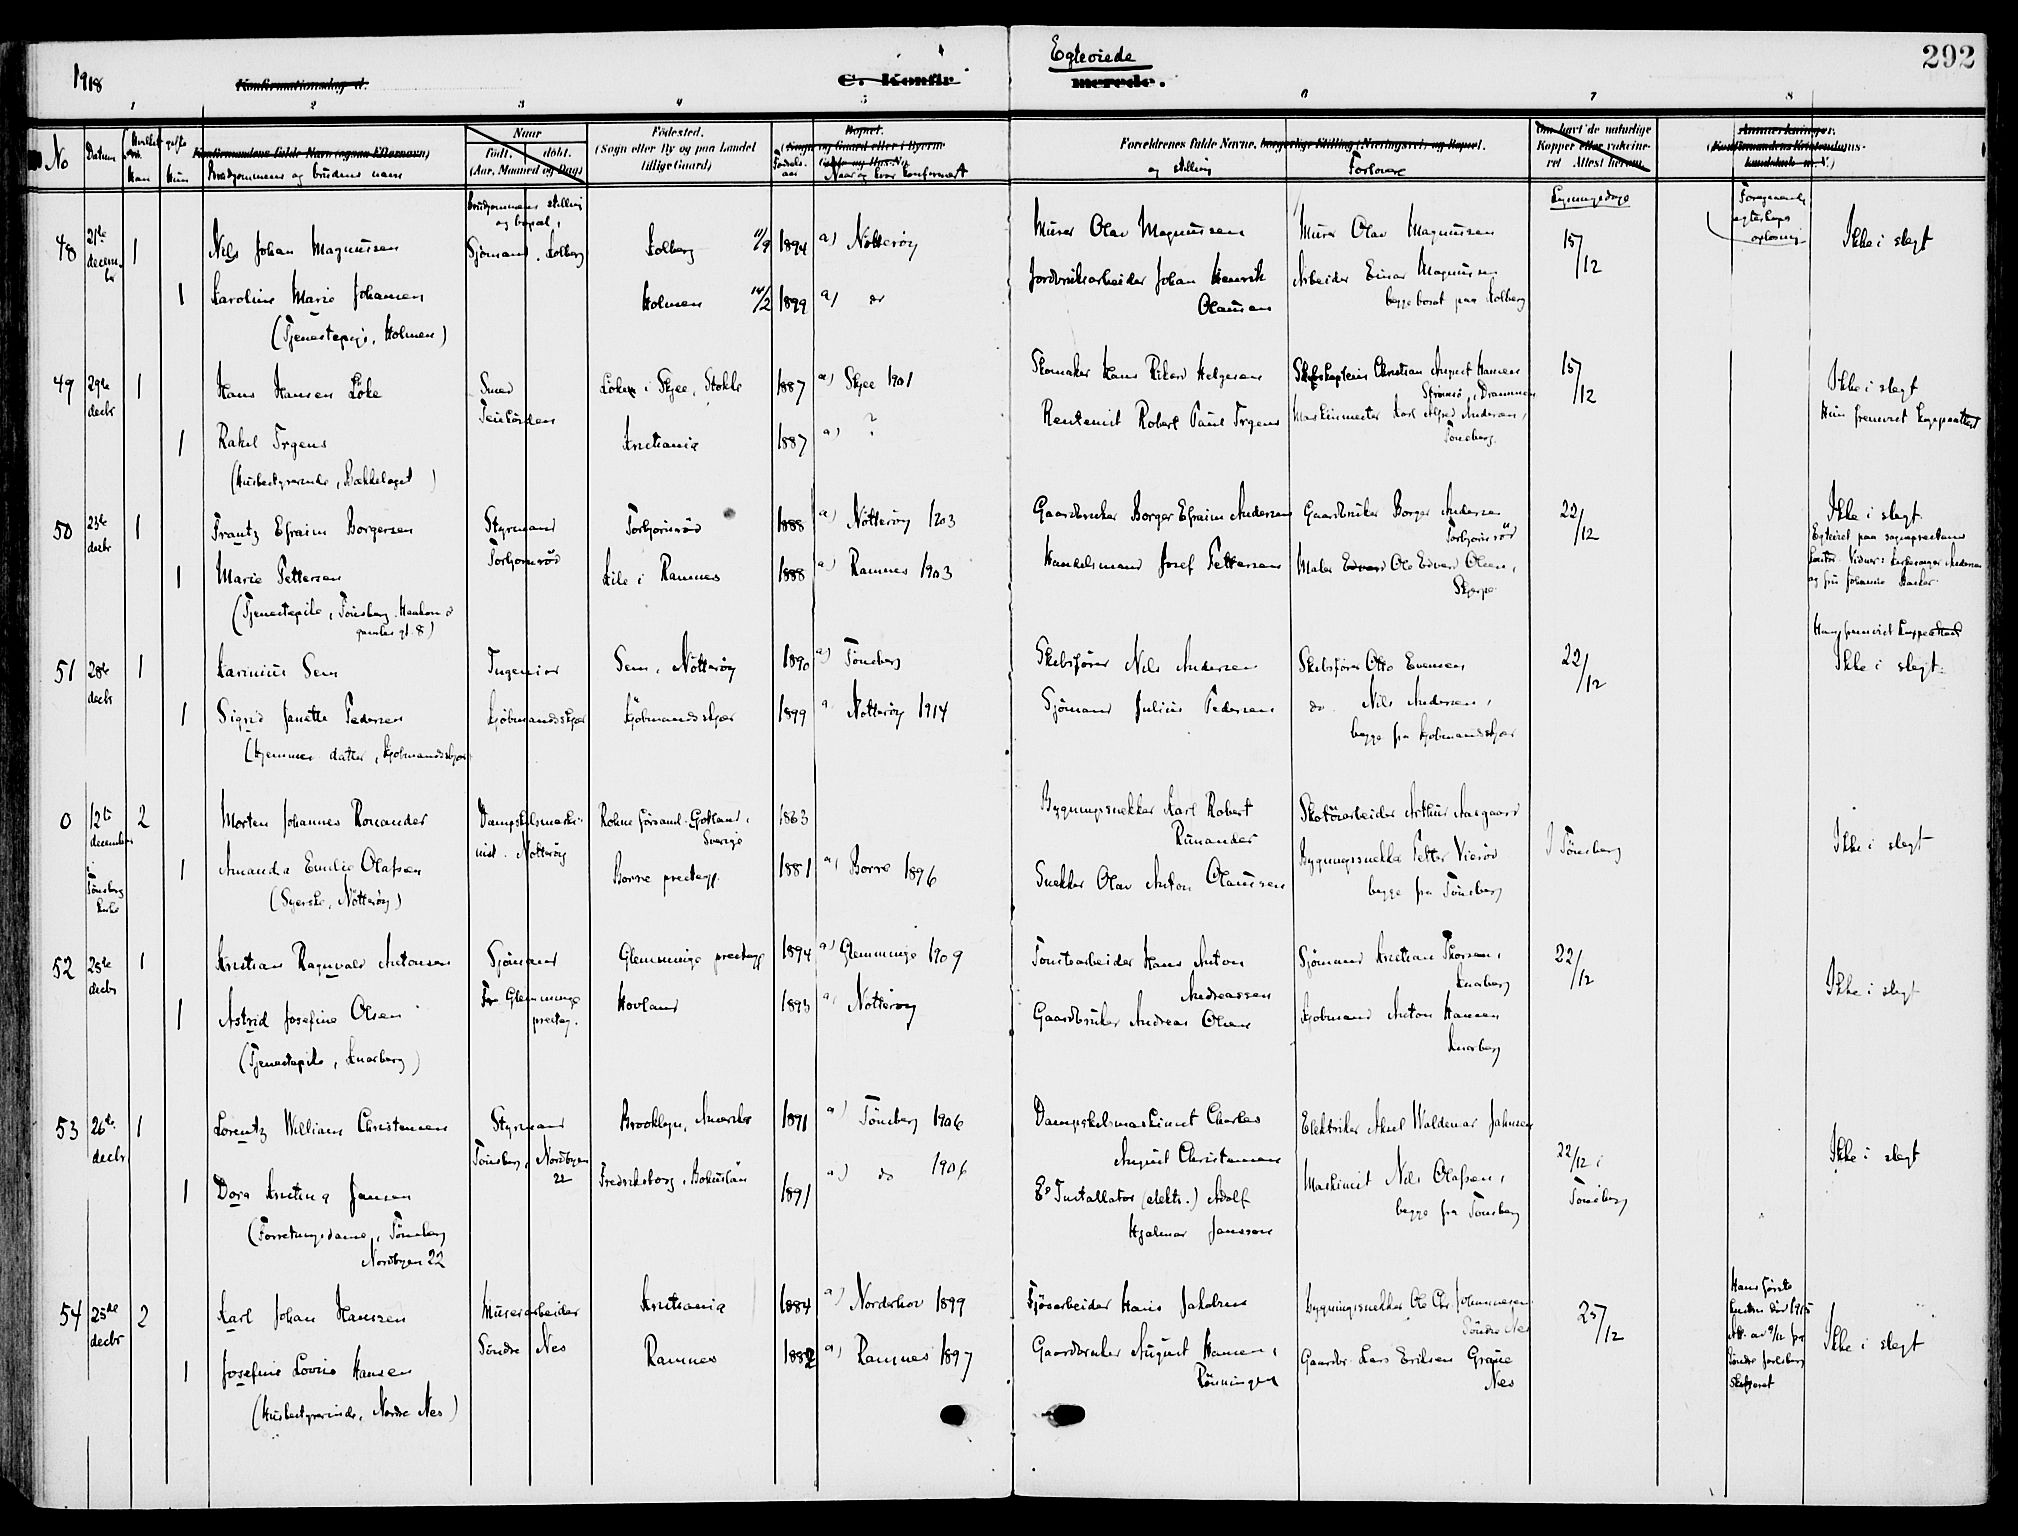 1918
Konfirmationsdag d.
C. Konfir
Egteviede
merede.
292
1 2 3 4 5 6 7 8
No
Datum
Hvilket
Kan
gifte
Kun
Konfirmandens fulde Navn (ogsaa Efternavn)
Brudgommens og brudens navn
Naar
født. døbt.
(Aar, Maaned og Dag)
Fødested.
(Sogn eller By og paa Landet
tillige Gaard)
Fødsels-
aar
Bopæl.
(Sogn og Gaard eller i Byerne
Gade og Hus-No.)
Naar og hvor konfirmert
Forældrenes fulde Navne, borgerlige Stilling (Næringsvei) og Bopæl.
og stilling
Forlovere
Om havt de naturlige
Kopper eller vaksine-
ret Attest herom.
Lysningsdage
Anmerkninger.
(Konfirmandens Kristendoms-
kundskab m. V.)
Foregaaende
egteskaps
opløsning
Brudgommens stilling
og bopæl
48
21de
decem-
br
1
Nils Johan Magnussen
Sjømand. Kolberg
Kolberg 11/9 1894
a) Nøtterøy
Murer Olav Magnussen
Murer Olav Magnussen
15/12
Ikke i slegt
1
Karoline Marie Johansen
(Tjenestepige, Holmen)
Holmen 14/2 1899
a) do
Jordbruksarbeider Johan Henrik
Olausen
Arbeider Einar Magnussen
begge bosat paa Kolberg
49
29de
decbr
1
Hans Hansen Løke
Smed
Løken i Skjee, Stokke
1887
a) Skjee 1901
Skomaker Hans Rikard Helgesen
Skibskaptein Christian August Hansen
Strømsø, Drammen
15/12
Ikke i slegt
1
Rakel Irgens
(Husbestyrerinde, Bækkelaget)
Kristiania
1887
a) ?
Rentenist Robert Paul Irgens
Maskinmester Karl Alfred Andersen,
Tønsberg.
50
23de
decbr
1
Frantz Efraim Borgersen
Styrmand
Torbjørnsrød
Torbjørnsrød
1888
a) Nøtterøy 1903
Gaardbruker Borger Efraim Andersen
Gaardbruker Borger Andersen
Torbjørnsrød
22/12
Ikke i slegt.
Egteviet paa sogneprestens
kontor. Vidner: kirkesanger Andersen
og fru Johanne Backer.
1
Marie Pettersen
(Tjenestepike, Tønsberg. Haakon d
gamles gt. 8)
Lile i Ramnes
1888
a) Ramnes 1903
Handelsmand Josef Pettersen
Maler Edvard Ole Edvard Olsen,
51
28de
decbr
1
Karinius Sem
Ingeniør
Kjøbmandsskjær
Sem, Nøtterøy
1890
a) Tønsberg
Skibsfører Nils Andersen
Skibsfører Otto Evensen
22/12
Ikke i slegt.
1
Sigrid Janette Pedersen
(Hjemmev. datter, Kjøbmandsskjær)
Kjøbmandsskjær
1899
a Nøtterøy 1914
Sjømand Julius Pedersen
do. Nils Andersen,
begge fra Kjøbmandsskjær
0
12te
december
i
Tønsberg
kirke
2
Morten Johannes Ronander
Dampskibsmaski-
nist. Nøtterøy
Rohne församl. Gotland,
Sverige
1863
Bygningssnekker Karl Robert
Runander
Skotøiarbeider Arthur Aasgaard
I Tønsberg
Ikke i slegt
1
Amanda Emilie Olafsen
(Syerske, Nøtterøy)
Borre prestegj.
1881
a) Borre 1896
Snekker Olav Anton Olaussen
Bygningssnekker Petter Vierød
begge fra Tønsberg
52
28de
decbr
1
Kristian Ragnvald Antonsen
Sjømand
Fr Glemminge
prestegj.
Glemminge prestegj
1894
a) Glemminge 1909
Tomtearbeider Hans Anton
Andreassen
Sjømand Kristian Thorsen,
Knarberg
22/12
Ikke i slegt
1
Astrid Josefine Olsen
(Tjenestepike, Knarberg)
Hovland
1893
a) Nøtterøy
Gaardbruker Andreas Olsen
Kjøbmand Anton Hansen
Knarberg
53
26de
decbr
1
Lorentz William Christensen
Styrmand
Tønsberg, Nordbyen
22
Brooklyn, Amerika
1891
a) Tønsberg 1906
Dampskibsmaskinist Charles
August Christensen
Elektriker Aksel Waldemar Jahnsen
22/12 i
Tønsberg
Ikke i slegt
1
Dora Kristina Jansen
(Forretningsdame, Tønsberg
Nordbyen 22
Fredriksborg, Bohuslän
1891
a) do 1906
Installatør (elektr.) Adolf
Hjalmar Jansson
Maskinist Nils Olafsen,
begge fra Tønsberg
54
25de
decbr
2
Karl Johan Hanssen
Murerarbeider
Søndre Nes
Kristiania
1884
a) Norderhov 1899
Fjøsarbeider Hans Jakobsen
Bygningssnekker Ole Chr. Johannesen
Søndre Nes
25/12
Hans første
hustru død 1915
Att. av 9/12 fra
Søndre Jarlsberg
Skifteret
Ikke i slegt
1
Josefine Lovise Hansen
(Husbestyrerinde, Nordre Nes)
Ramnes
1882
a) Ramnes 1897
Gaardbruker August Hansen,
Rønningen
Gaardbr. Lars Eriksen Græue
Nes